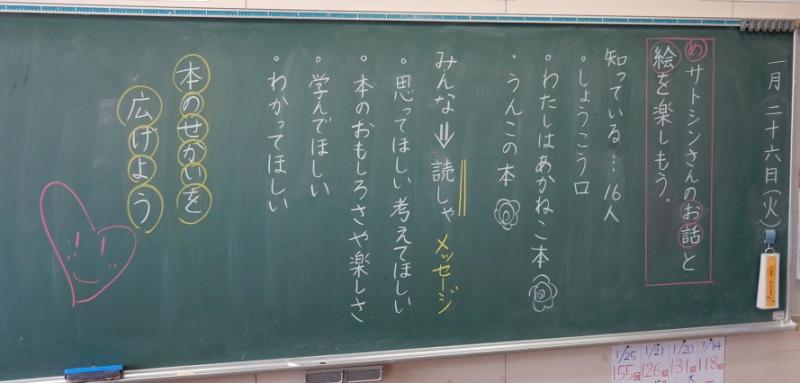 一月二十六日(火)
めサトシンさんのお話と
絵を楽しもう。
知っている…16人
・しょうこう口
・わたしはあかねこ本
・うんこの本
みんな⇒読しゃ メッセージ
・思ってほしい 考えてほしい
・本のおもしろさや楽しさ
・学んでほしい
・わかってほしい
本のせかいを
広げよう
1/25 1/21 1/20 1/14
155 126 131 118